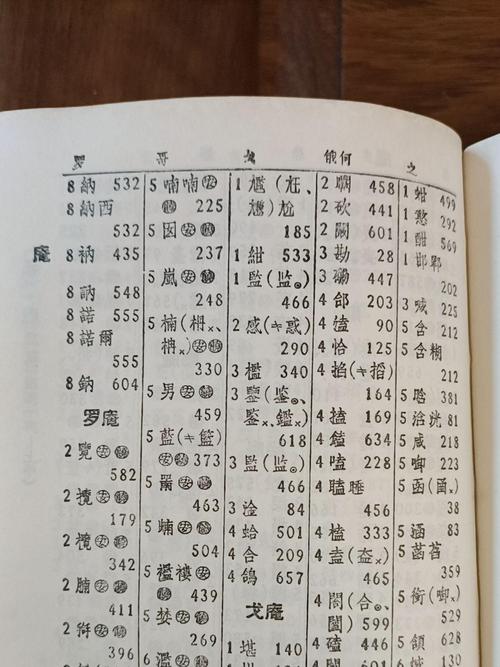 何
之
庵
8 納 532
8 納西
532
8 衲 435
8 訥 548
8 諾 555
8 諾爾
555
8 鈉 604
罗庵
2 覽
582
2 攬
179
2 欖
342
2 腩
411
396
5 喃喃
225
5 囡
237
5 嵐
248
5 楠(枏、
330
5 男
459
5 藍(キ籃)
373
463
5 蝻
504
5 襤褸
439
5 婪
269
6 濫
1 尷(尪、
尲)尬
185
1 紺 533
1 監(监。)
466
2 感(キ惑)
290
3 檻 340
3 鑒(鉴。、
鑑×)
618
3 監(监。)
466
3 淦 84
4 蛤 501
4 合 209
4 鴿 657
戈庵
1 堪 140
2 砍 441
2 闞 601
3 勘 28
3 磡 447
4 郃 203
4 嗑 90
4 恰 125
4 掐(キ搯)
164
4 搕 169
4 鎑 634
4 嗑 228
4 瞌睡
456
4 榼 333
465
4 閤(合。、
闔) 599
4 磕 446
1 蚶 499
1 憨 292
1 酣 569
1 邯鄲
202
3 喊 225
5 含 212
5 含糊
212
5 晗 381
5 浛洸 81
5 咸 218
5 啣 223
5 函(圅×)
38
5 涵 83
5 菡萏
359
5 銜(啣×)
529
5 頷 628
130